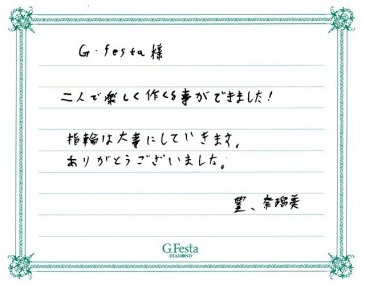 G.festa 様
二人で楽しく作くる事ができました!
指輪は大事にしていきます。
ありがとうございました。
豊、奈瑠美
G.Festa
DIAMOND